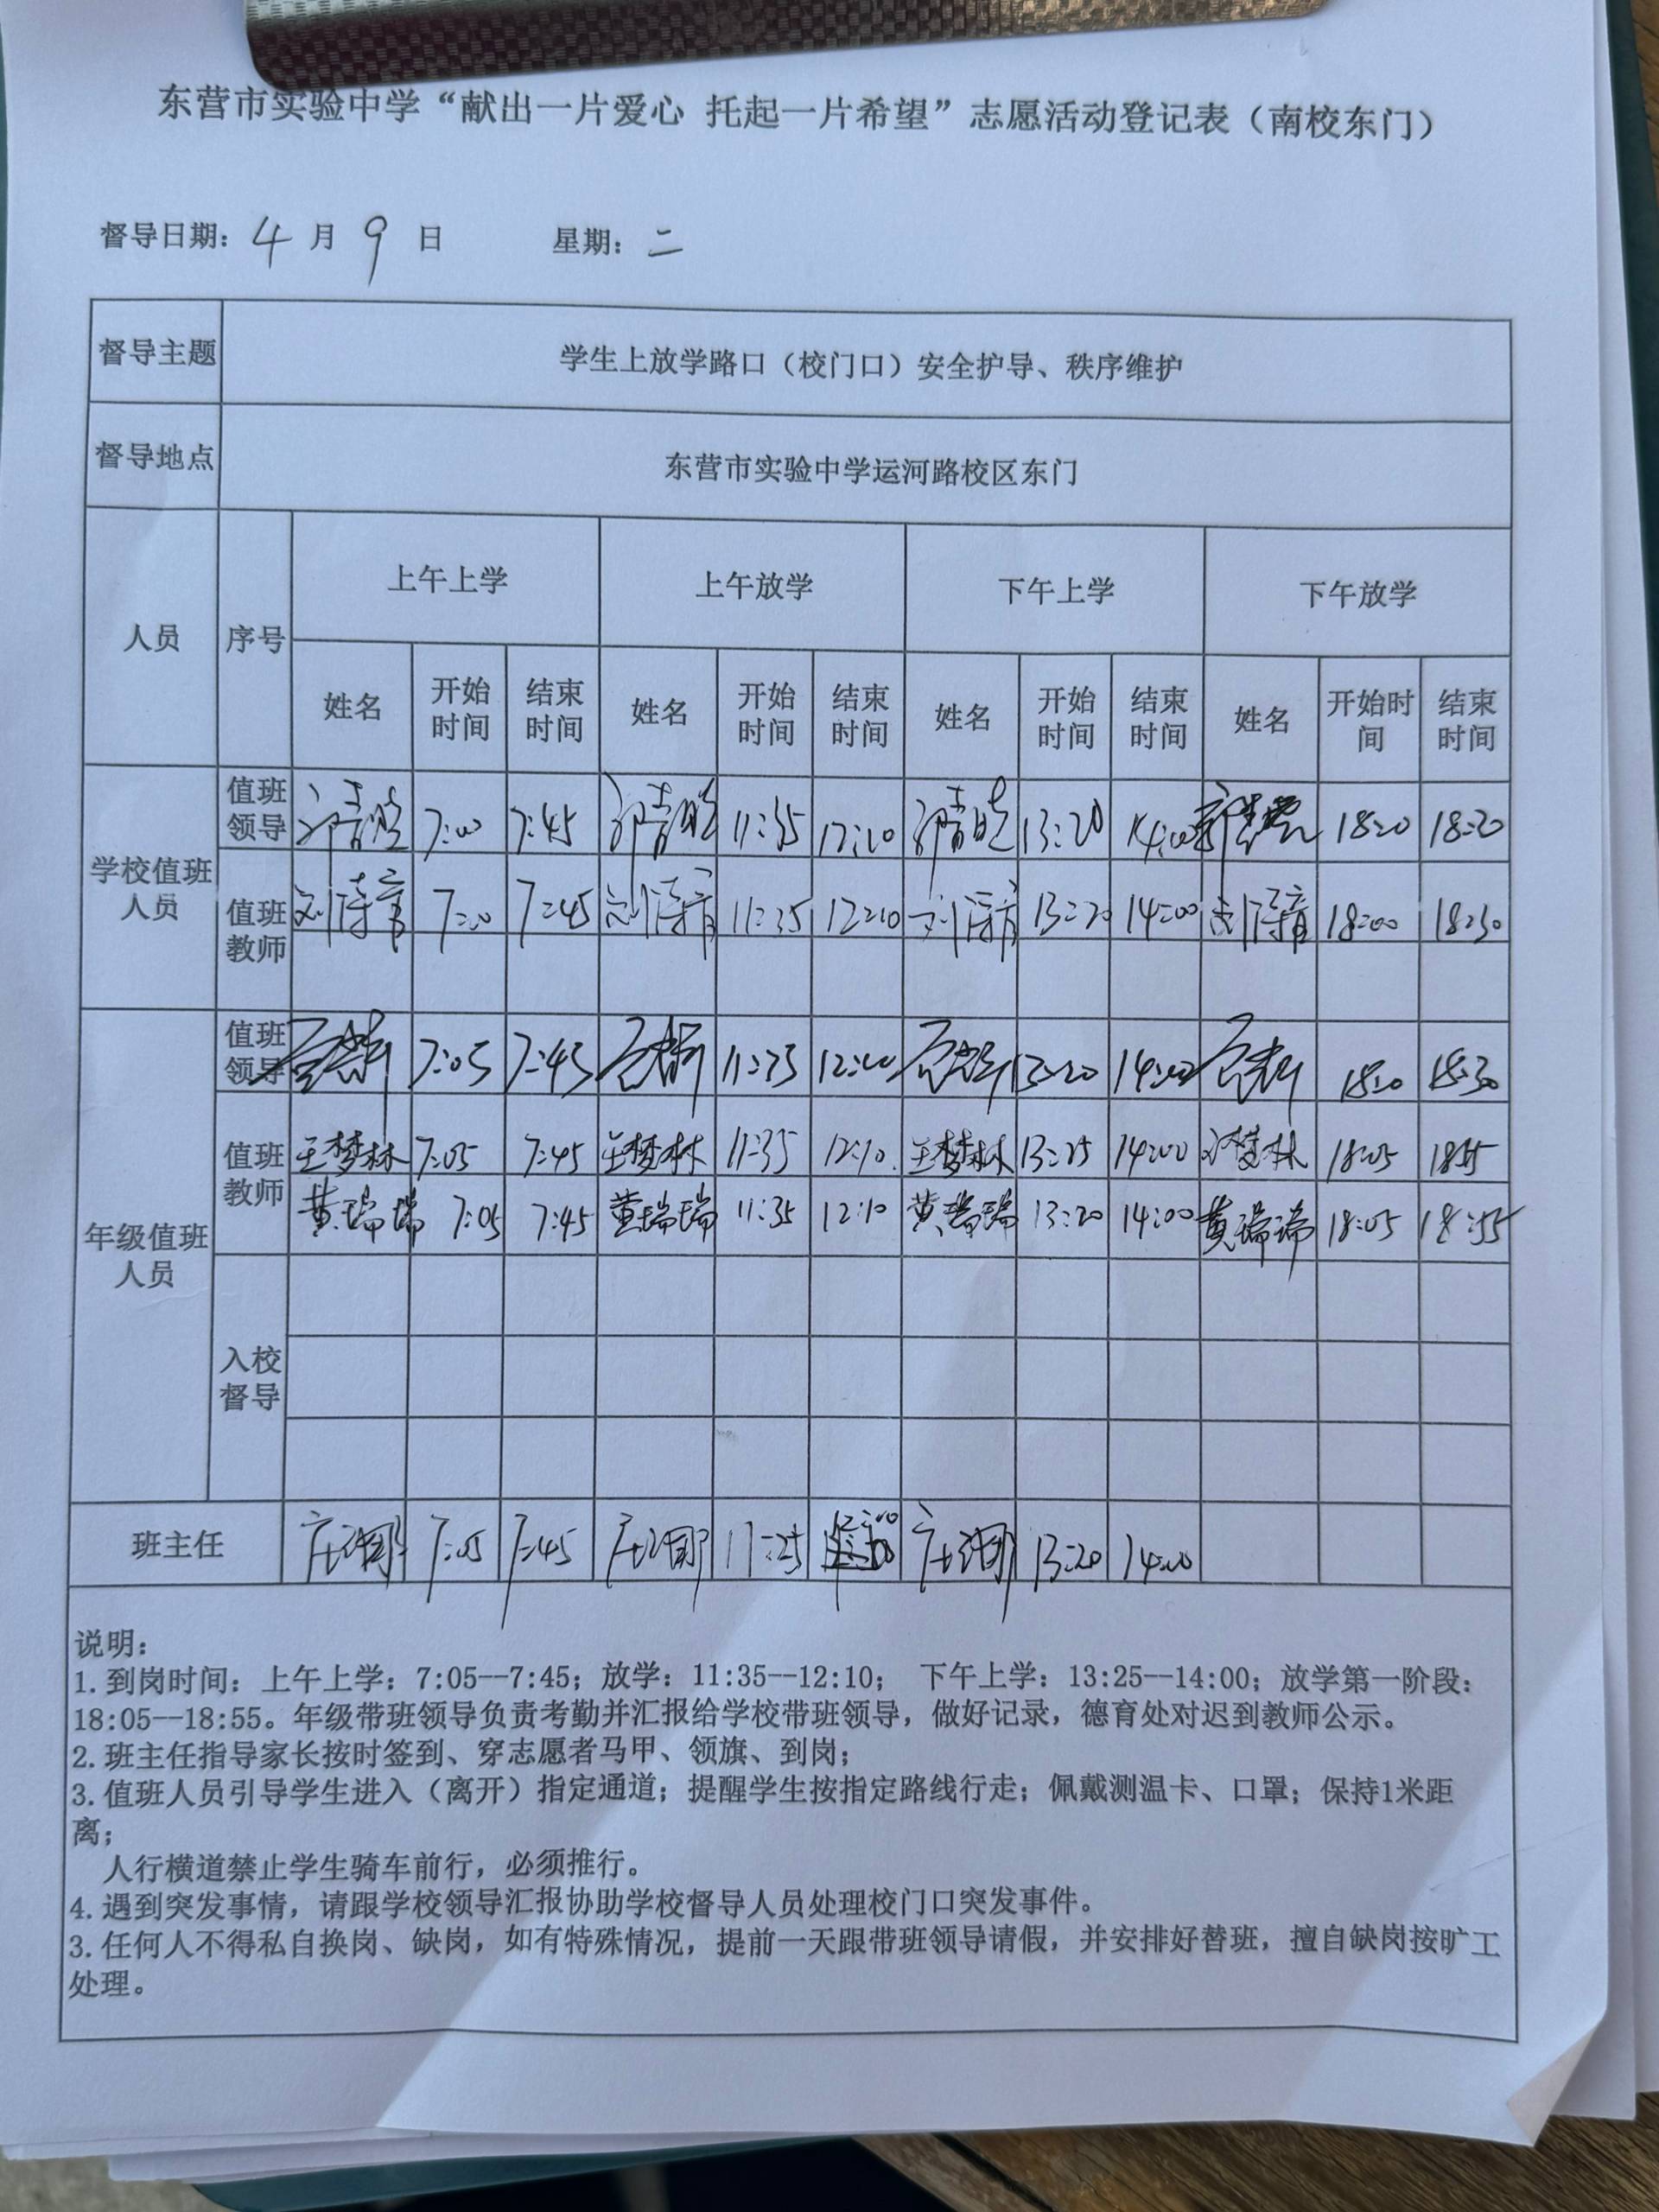 东营市实验中学“献出一片爱心 托起一片希望”志愿活动登记表（南校东门）
督导日期：4月9日 星期：二
督导主题 学生上放学路口（校门口）安全护导、秩序维护
督导地点 东营市实验中学运河路校区东门
人员 序号 上午上学 上午放学 下午上学 下午放学
姓名 开始时间 结束时间 姓名 开始时间 结束时间 姓名 开始时间 结束时间 姓名 开始时间 结束时间
学校值班人员
值班领导 7:00 7:45 11:35 12:10 13:20 14:00
值班教师 7:00 7:45 11:35 12:10 13:20 14:00 18:00 18:30
年级值班人员
值班领导 7:05 7:45 11:35 13:20 14:00 18:30
值班教师 王梦林 7:05 7:45 王梦林 11:35 12:10 王梦林 13:25 14:00 王梦林 18:05
黄瑞瑞 7:05 7:45 黄瑞瑞 11:35 12:10 黄瑞瑞 13:20 14:00 黄瑞瑞 18:05 18:55
入校督导
班主任 7:05 7:45 11:25 13:20 14:00
说明：
1.到岗时间：上午上学：7:05--7:45；放学：11:35--12:10； 下午上学：13:25--14:00；放学第一阶段：
18:05--18:55。年级带班领导负责考勤并汇报给学校带班领导，做好记录，德育处对迟到教师公示。
2.班主任指导家长按时签到、穿志愿者马甲、领旗、到岗；
3.值班人员引导学生进入（离开）指定通道；提醒学生按指定路线行走；佩戴测温卡、口罩；保持1米距
离；
人行横道禁止学生骑车前行，必须推行。
4.遇到突发事情，请跟学校领导汇报协助学校督导人员处理校门口突发事件。
3.任何人不得私自换岗、缺岗，如有特殊情况，提前一天跟带班领导请假，并安排好替班，擅自缺岗按旷工
处理。